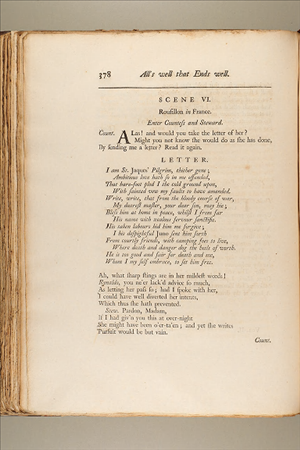 378 All's well that Ends well.
SCENE VI.
Rousillon in France.
Enter Countess and Steward.
Count. ALas! and would you take the letter of her?
Might you not know she would do as she has done,
By sending me a letter? Read it again.
LETTER.
I am St. Jaques' Pilgrim, thither gone;
Ambitious love hath so in me offended,
That bare-foot plod I the cold ground upon,
With sainted vow my faults to have amended.
Write, write, that from the bloody course of war,
My dearest master, your dear son, may hie;
Bless him at home in peace, whilst I from far
His name with zealous fervour sanctifie.
His taken labours bid him me forgive;
I his despightful Juno sent him forth
From courtly friends, with camping foes to live,
Where death and danger dog the heels of worth.
He is too good and fair for death and me,
Whom I my self embrace, to set him free.
Ah, what sharp stings are in her mildest words!
Rynaldo, you ne'er lack'd advice so much,
As letting her pass so; had I spoke with her,
I could have well diverted her intents,
Which thus she hath prevented.
Stew. Pardon, Madam,
If I had giv'n you this at over-night
She might have been o'er-ta'en; and yet she writes
Pursuit would be but vain.
Count.